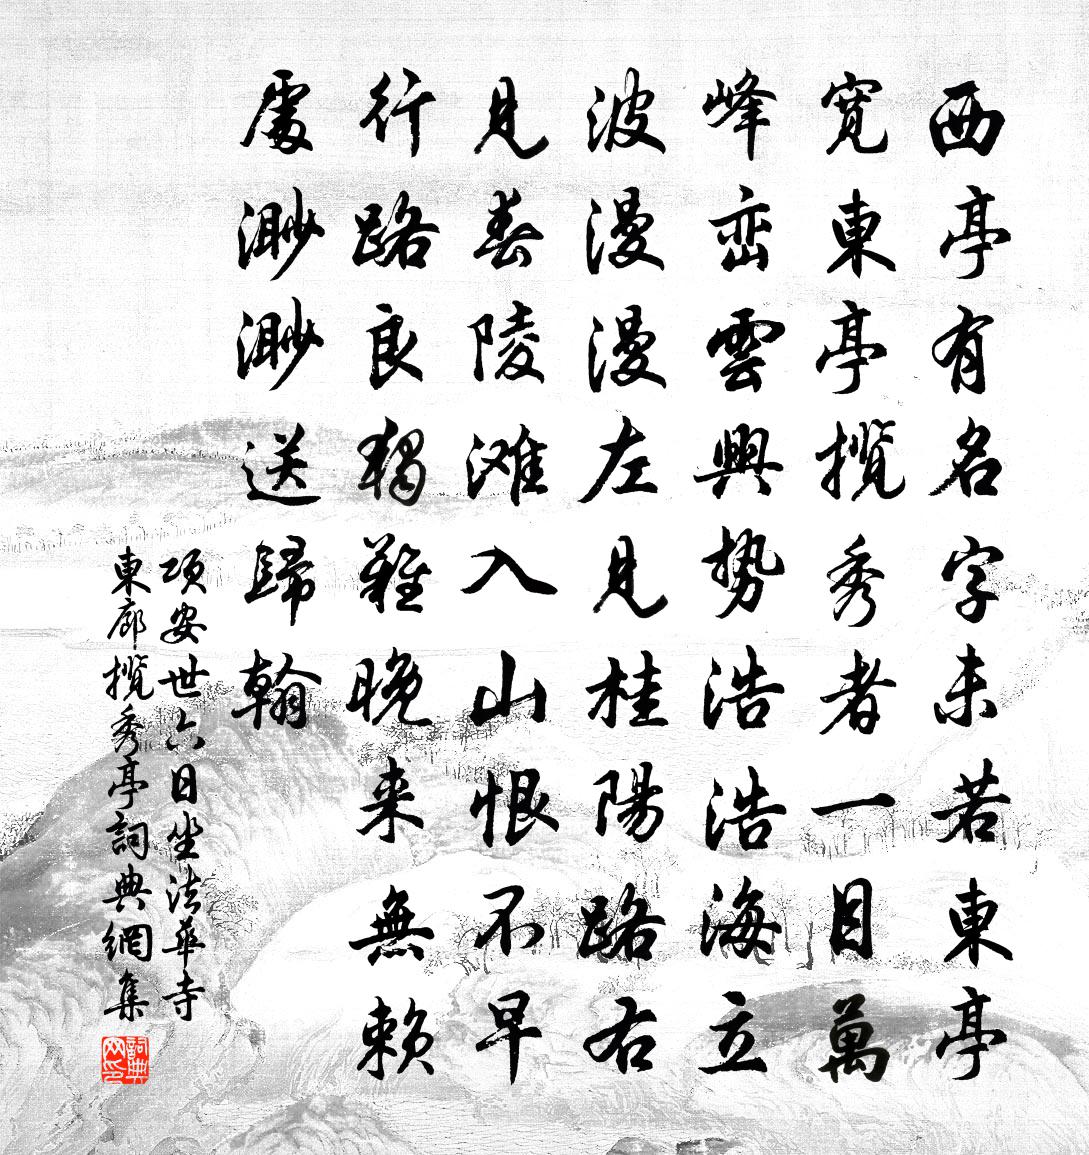 西亭有名字未若東亭
寬東亭攬秀者一目萬
峰巒雲興勢浩浩海立
波漫漫左見桂陽路右
見舂陵灘入山恨不早
行路良獨難晚来無賴
處渺渺送歸翰
項安世六日坐法華寺
東廊攬秀亭詞典網集